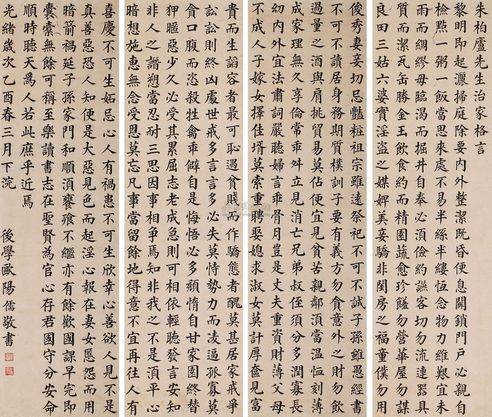 朱柏廬先生治家格言
黎明即起灑掃庭除要内外整潔既昏便息關鎖門戶必親自
檢點一粥一飯當思來處不易半絲半縷恒念物力維艱宜未
雨而綢繆毋臨渴而掘井自奉必須儉約讌客切勿流連器具
質而潔瓦缶勝金玉飲食約而精園蔬愈珍饈勿營華屋勿謀
良田三姑六婆實淫盜之媒婢美妾嬌非閨房之福童僕勿用
俊秀妻妾切忌豔粧祖宗雖遠祭祀不可不誠子孫雖愚經書
不可不讀居身務期質樸訓子要有義方勿貪意外之財勿飲
過量之酒與肩挑貿易莫佔便宜見貧苦親鄰須當温恤刻薄
成家理無久享倫常乖舛立見消亡兄弟叔侄須分多潤寡長
幼内外宜法肅詞嚴聽婦言乖骨月豈是丈夫重資財薄父母
不成人子嫁女擇佳壻莫索重聘娶媳求淑女莫計厚奩見富
貴而生諂容者最可恥遇貧賤而作驕態者醜莫甚居家戒爭
訟訟則終凶處世戒多言言多必失莫恃勢力而凌逼孤寡莫
貪口腹而恣殺牲禽乖僻自是悔悟必多頽惰自甘家園終替
狎暱惡少久必受其累屈志老成急可相依輕聽發言安知
非人之譖愬當忍耐三思因事相爭焉知非我之不是須平心
暗想施惠無念受恩莫忘凡事當留餘地得意不宜再往人有
喜慶不可生妬忌心人有禍患不可生欣幸心善欲人見不是
真善惡恐人知便是大惡見色而起淫心報在妻女匿怨而用
暗箭禍延子孫家門和順雖饔飧不繼亦有餘歡國課早完即
囊橐無餘可稱至樂讀書志在聖賢為官心存君國守分安命
順時聽天為人若此庶乎近焉
光緒歲次乙酉春三月下浣
後學歐陽儒敬書